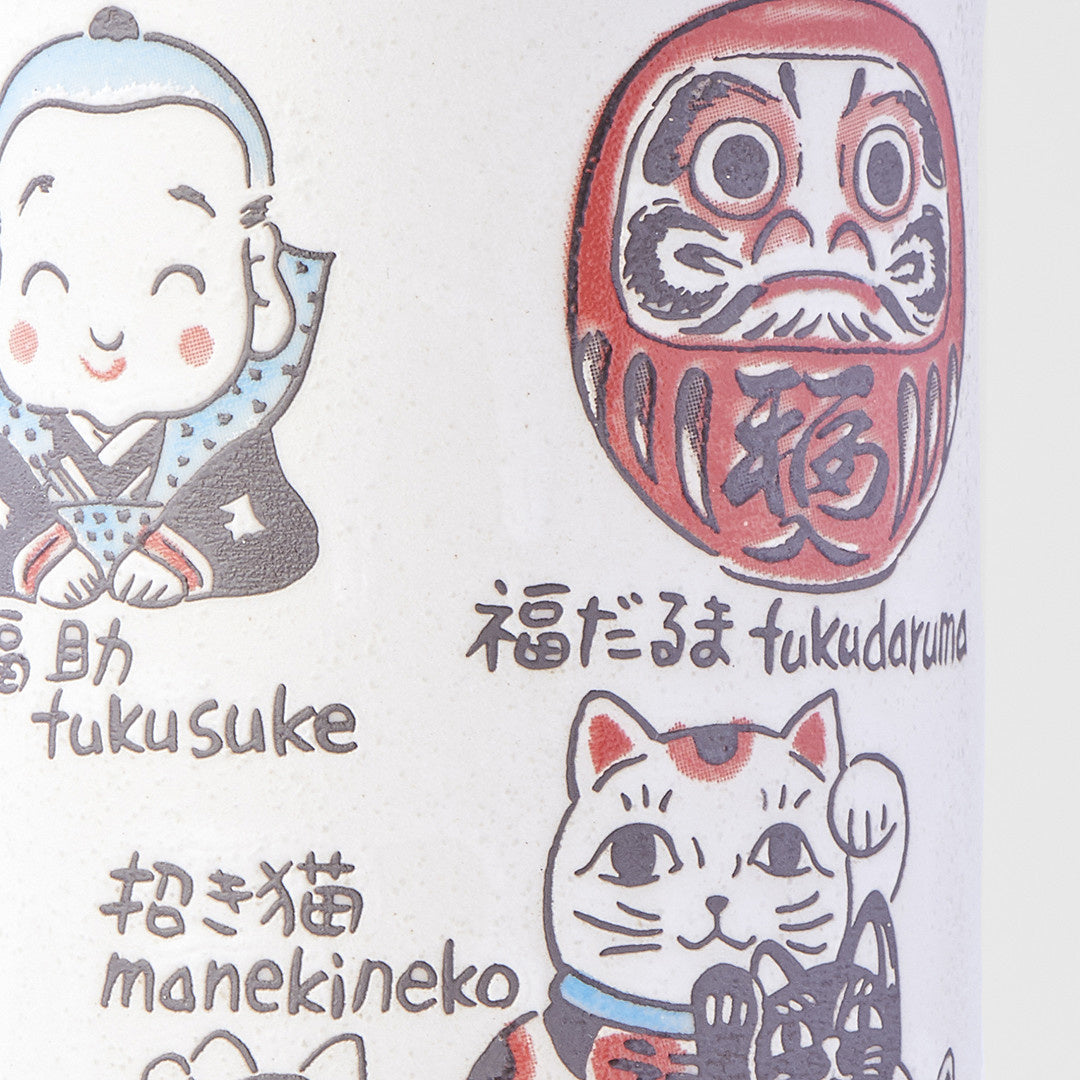 福
福助
fukusuke
福だるま fukudaruma
招き猫
manekineko